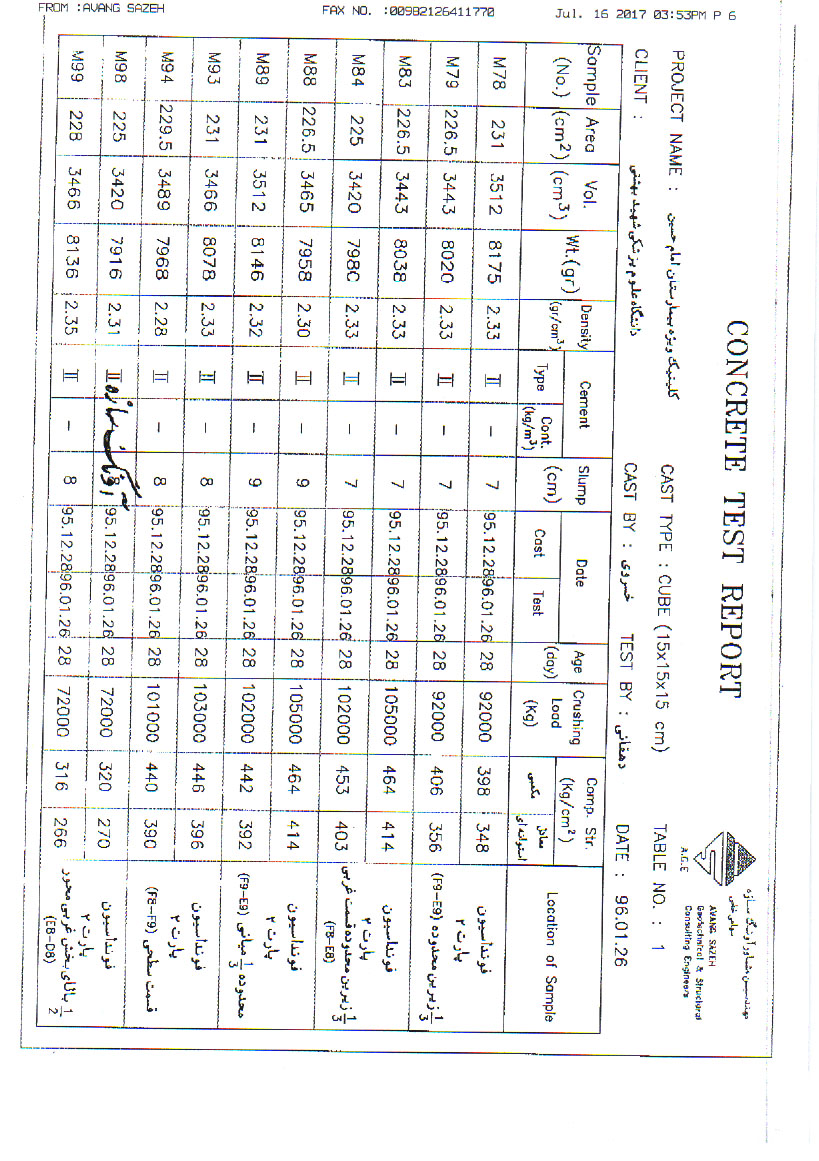 FROM :AVANG SAZEH FAX NO. :00982126411770 Jul. 16 2017 03:53PM P 6
CONCRETE TEST REPORT
مهندسین مشاور آونگ سازه
AVANG SAZEH
Geotechnical & Structural
Consulting Engineers
A.G.E
PROJECT NAME : کلینیک ویژه بیمارستان امام حسین CAST TYPE : CUBE (15x15x15 cm) TABLE NO. : 1
CLIENT : دانشگاه علوم پزشکی شهید بهشتی CAST BY : خسروی TEST BY : دهقانی DATE : 96.01.26
Sample (No.) Area (cm2) Vol. (cm3) Wt.(gr) Density (gr/cm3) Cement Type Cont. (kg/m3) Slump (cm) Date Cast Test Age (day) Crushing Load (Kg) Comp. Str. (Kg/cm2) مکعبی معادل استوانه‌ای Location of Sample
M78 231 3512 8175 2.33 II - 7 95.12.28 96.01.26 28 92000 398 348
M79 226.5 3443 8020 2.33 II - 7 95.12.28 96.01.26 28 92000 406 356
فونداسیون
پارت ۲
1/3 زیرین محدوده (F9-E9)
M83 226.5 3443 8038 2.33 II - 7 95.12.28 96.01.26 28 105000 464 414
M84 225 3420 7980 2.33 II - 7 95.12.28 96.01.26 28 102000 453 403
فونداسیون
پارت ۲
1/3 زیرین محدوده قسمت غربی
(F8-E8)
M88 226.5 3465 7958 2.30 II - 9 95.12.28 96.01.26 28 105000 464 414
M89 231 3512 8146 2.32 II - 9 95.12.28 96.01.26 28 102000 442 392
فونداسیون
پارت ۲
محدوده 1/3 میانی (F9-E9)
M93 231 3466 8078 2.33 II - 8 95.12.28 96.01.26 28 103000 446 396
M94 229.5 3489 7968 2.28 II - 8 95.12.28 96.01.26 28 101000 440 390
فونداسیون
پارت ۲
قسمت سطحی (F8-F9)
M98 225 3420 7916 2.31 II - 8 95.12.28 96.01.26 28 72000 320 270
M99 228 3466 8136 2.35 II - 8 95.12.28 96.01.26 28 72000 316 266
فونداسیون
پارت ۲
1/2 بالای بخش غربی محور
(E8-D8)
آونگ سازه